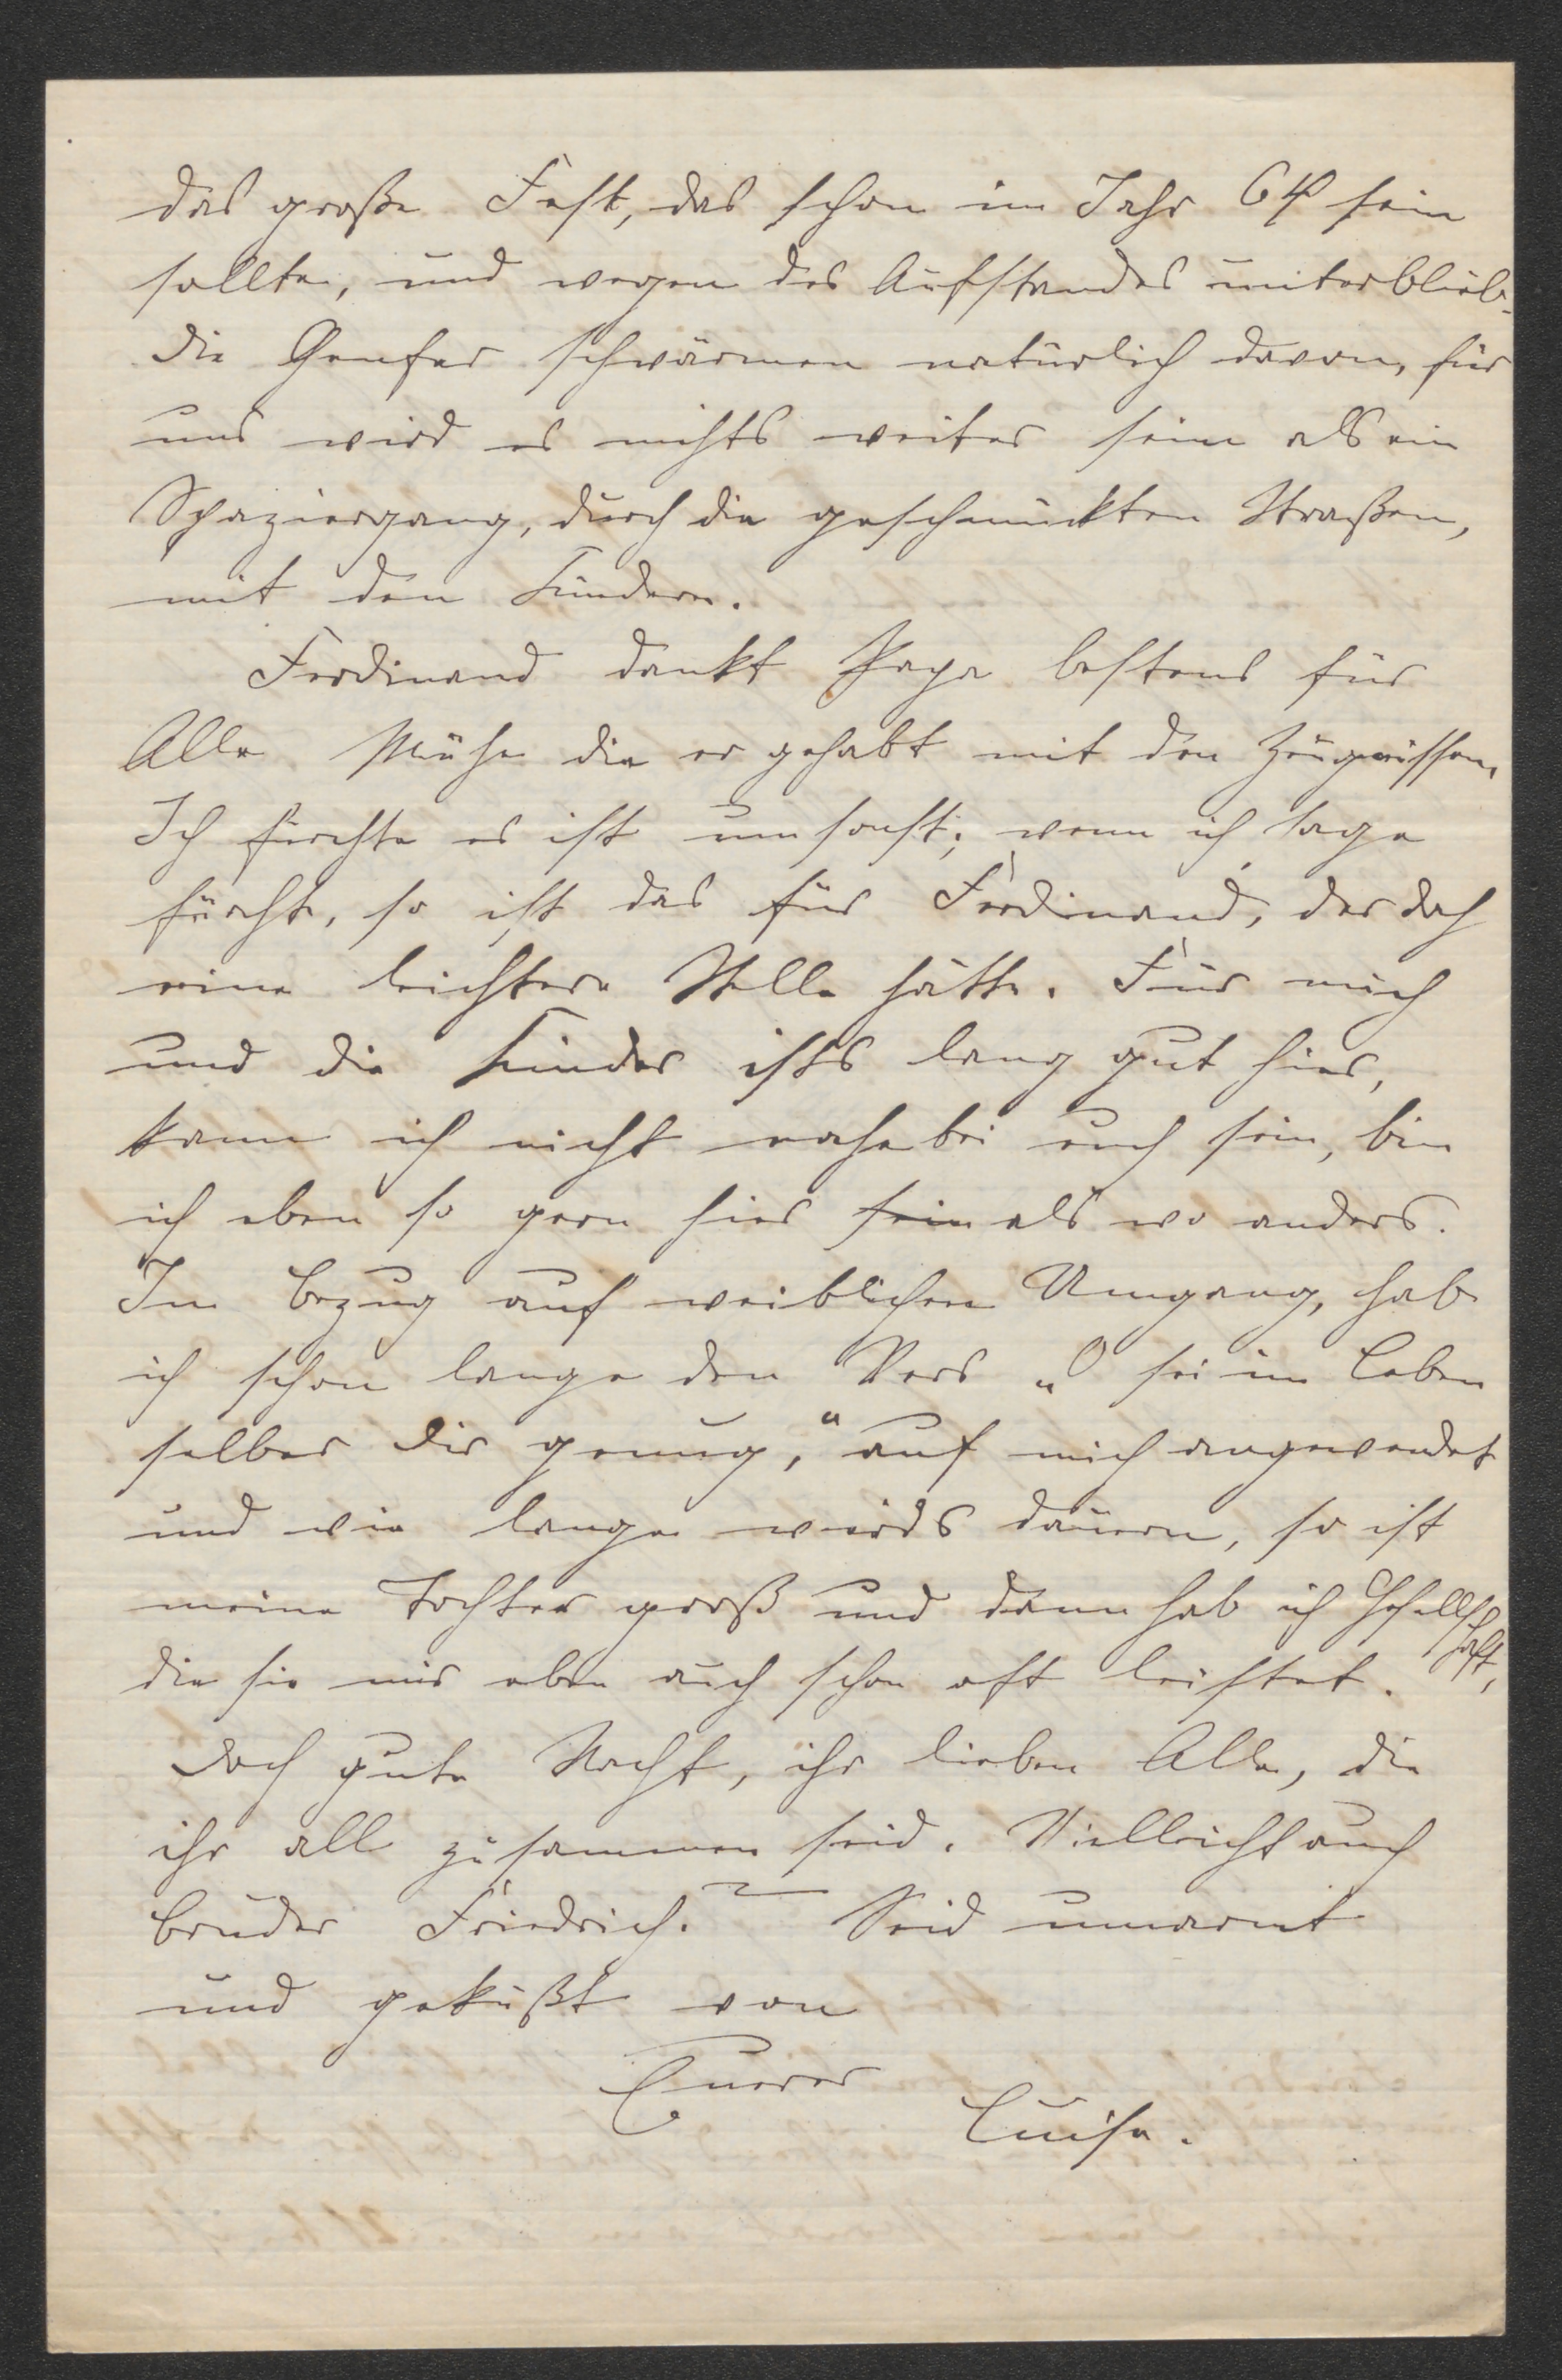 das große Fest, das schon im Jahr 64 sein
sollte, und wegen des Aufstandes unterblieb.
die Genfer schwärmen natürlich davon, für
uns wird es nichts weiter sein als ein
Spaziergang, durch die geschmückten Straßen,
mit den Kindern.
Ferdinand dankt Papa bestens für
Alle Mühe die er gehabt mit den Zeugnissen,
Ich fürchte es ist umsonst; wenn ich sage
fürchte, so ist das für Ferdinand, der doch
eine leichtere Stelle hätte. Für mich
und die Kinder ists lang gut hier,
kann ich nicht nahe bei euch sein, bin
ich eben so gern hier sein als wo anders.
In Bezug auf weiblichen Umgang, hab
ich schon lange den Vers „O sei im Leben
selber dir genug,“ auf mich angewendet
und wie lange wirds dauern, so ist
meine Tochter groß und dann hab ich Gesellschaft,
die sie mir eben auch schon oft leistet.
Doch gute Nacht, ihr lieben Alle, die
ihr all zusammen seid. Vielleicht auch
Bruder Friedrich? Seid umarmt
und geküßt von
Eurer
Luise.